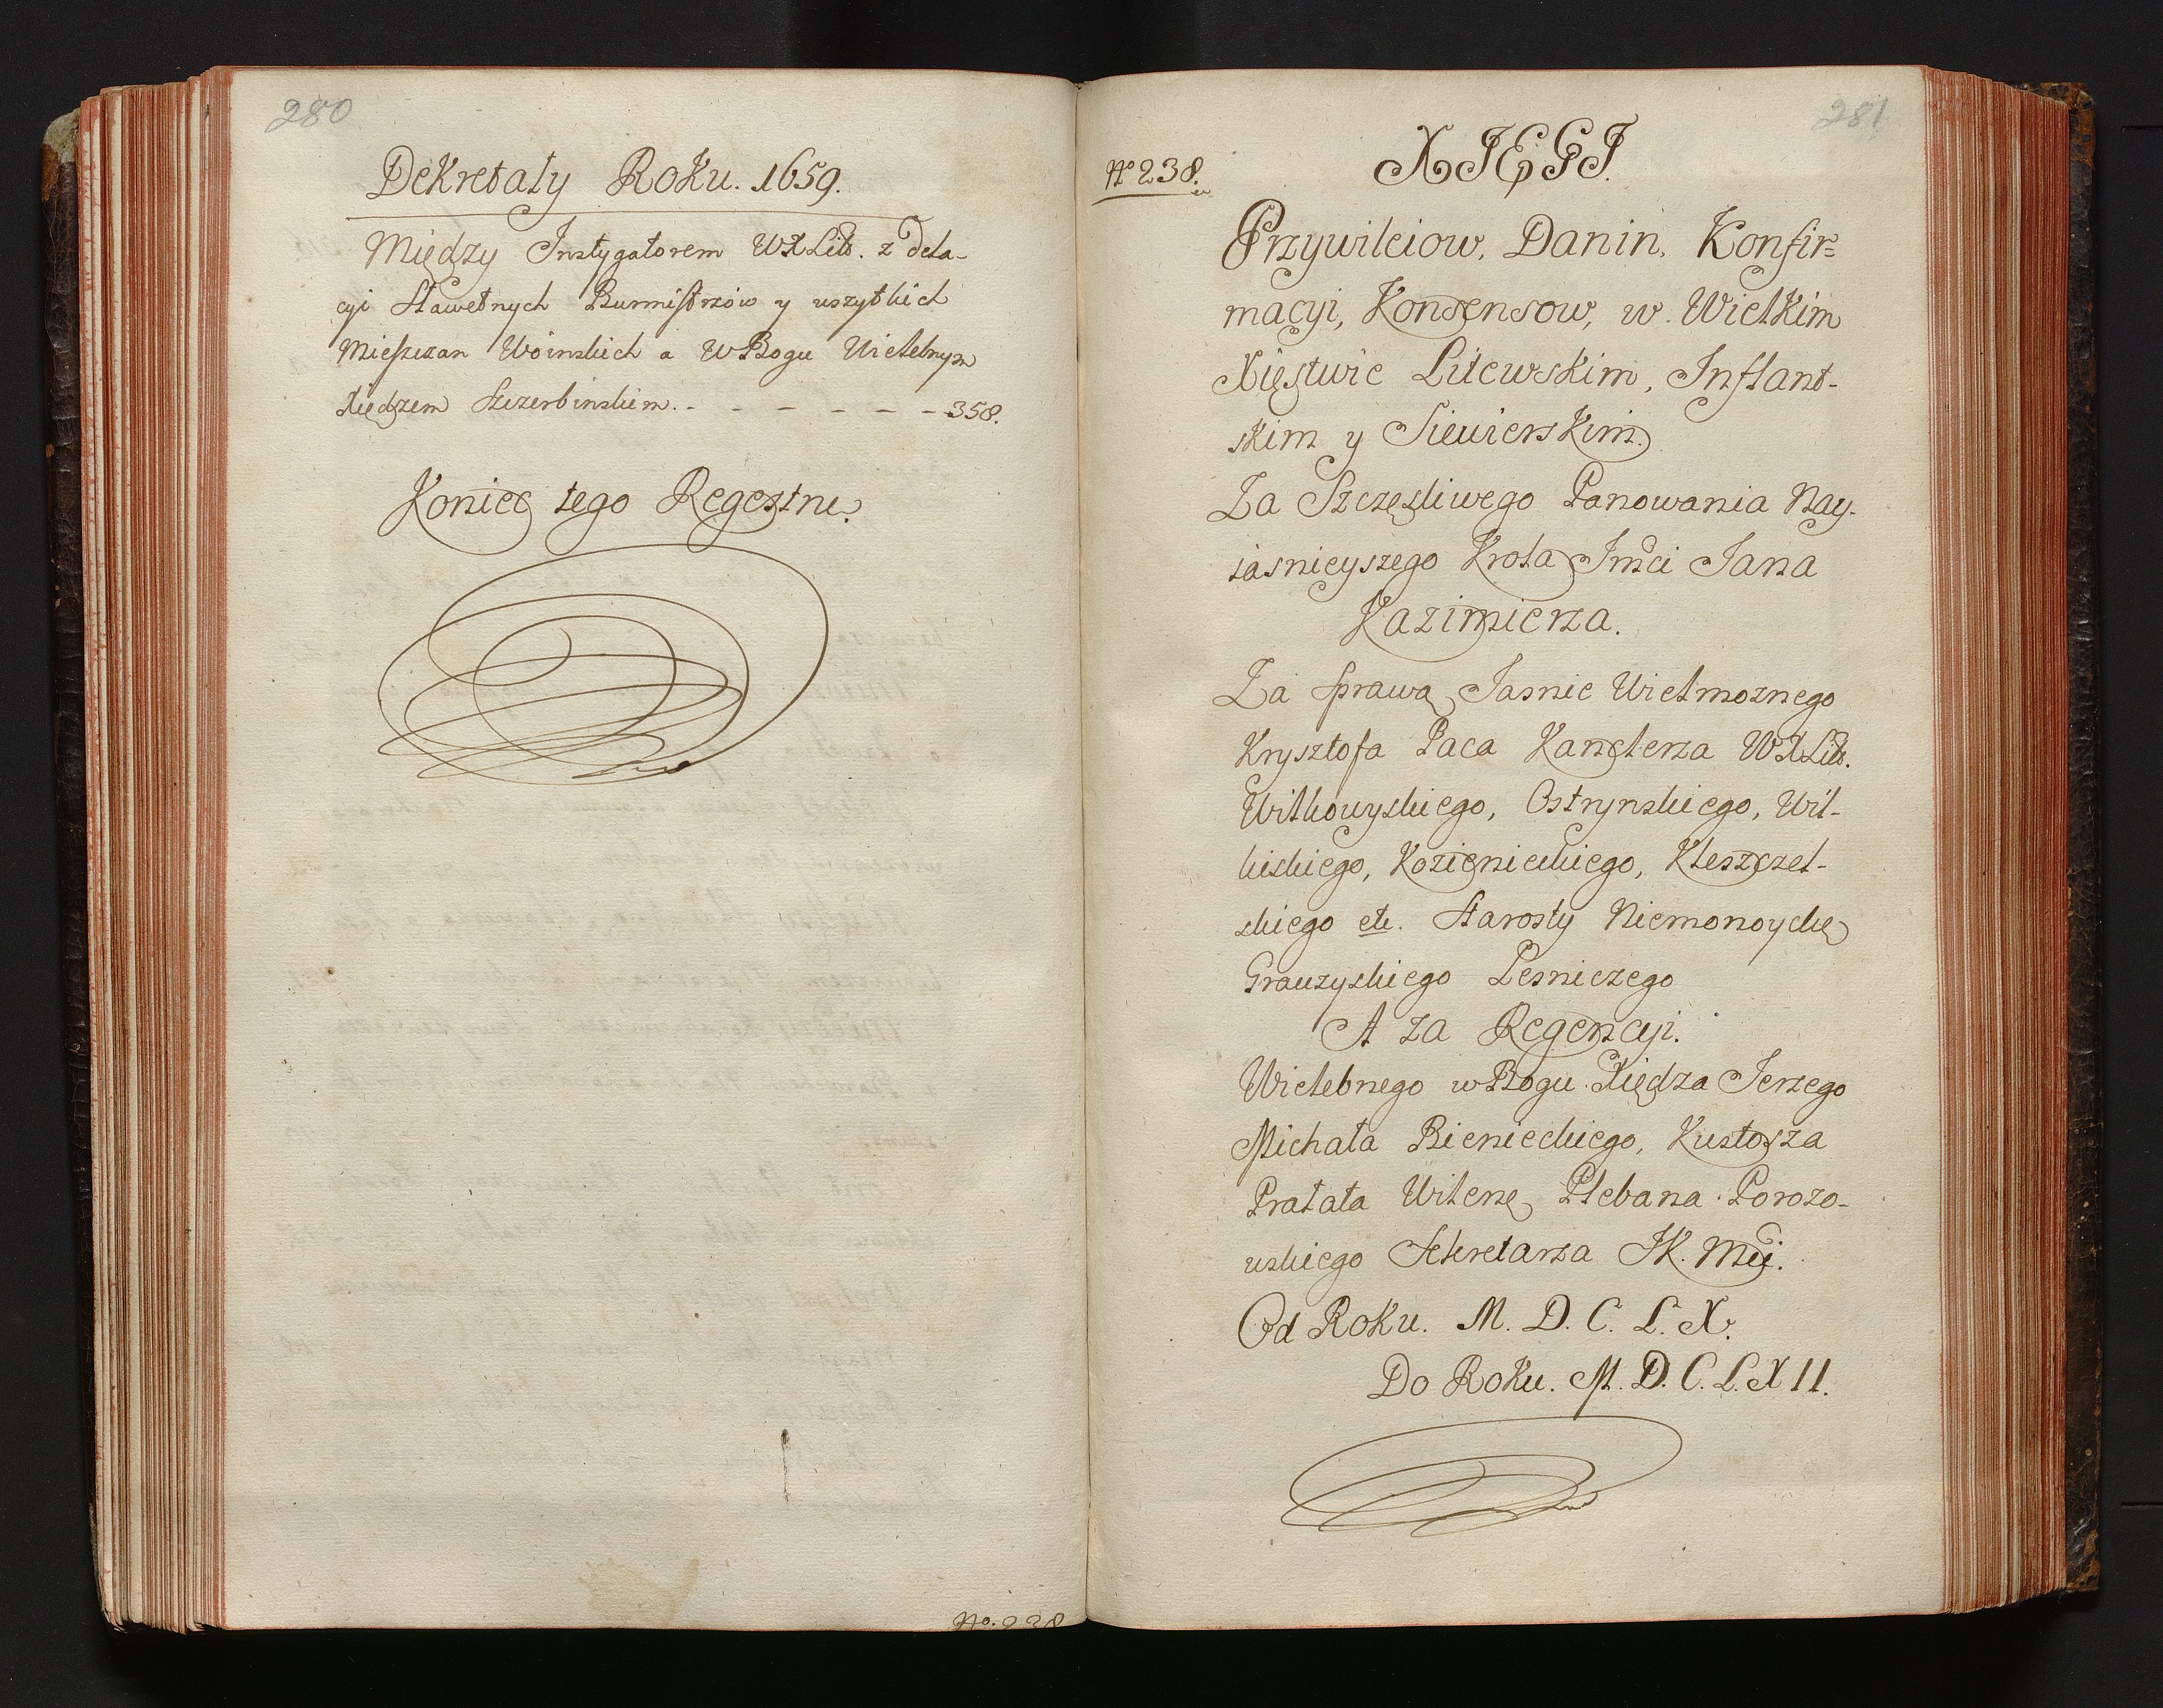 280
Dekretały Roku. 1659.
Między Instygatorem WXLitt. z dela-
cyi Sławetnych Burmistrzów y wszytkich
Mieszczan Woinskich a W Bogu Wielebnym
Xiędzem Szczerbinskim. - - - - - - 358.
Koniec tego Regestru.
No. 238
281
No 238.
XIĘGI.
Przywileiow, Danin, Konfir=
macyi, Konsensow, w Wielkim
Xięstwie Litewskim, Inflant-
skim y Siewierskim.
Za Szczęsliwego Panowania Nay-
iasnieyszego Krola Jmci Jana
Kazimierza.
Za sprawą Jasnie Wielmoznego
Krysztofa Paca Kanclerza WXLitt.
Wilkowyskiego, Ostrynskiego, Wil-
kiskiego, Kozienieckiego, Kleszczel-
skiego etc. Starosty Niemonoyckę
Grauzyskiego Lesniczego
A za Regencyi.
Wielebnego w Bogu Xiędza Jerzego
Michała Bienieckiego, Kustosza
Prałata Wilenę Plebana Porozo-
wskiego Sekretarza JK. Mci.
Od Roku. M. D. C. L. X.
Do Roku. M. D. C. L. X II.